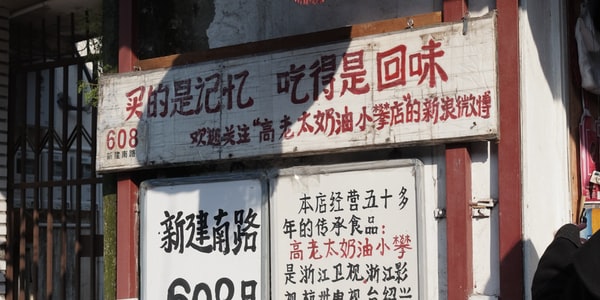 买的是记忆 吃得是回味
608
新建南路
欢迎关注"高老太奶油小攀店"的新浪微博
新建南路
608号
本店经营五十多
年的传承食品:
高老太奶油小攀
是浙江卫视浙江影
视杭州电视台绍兴